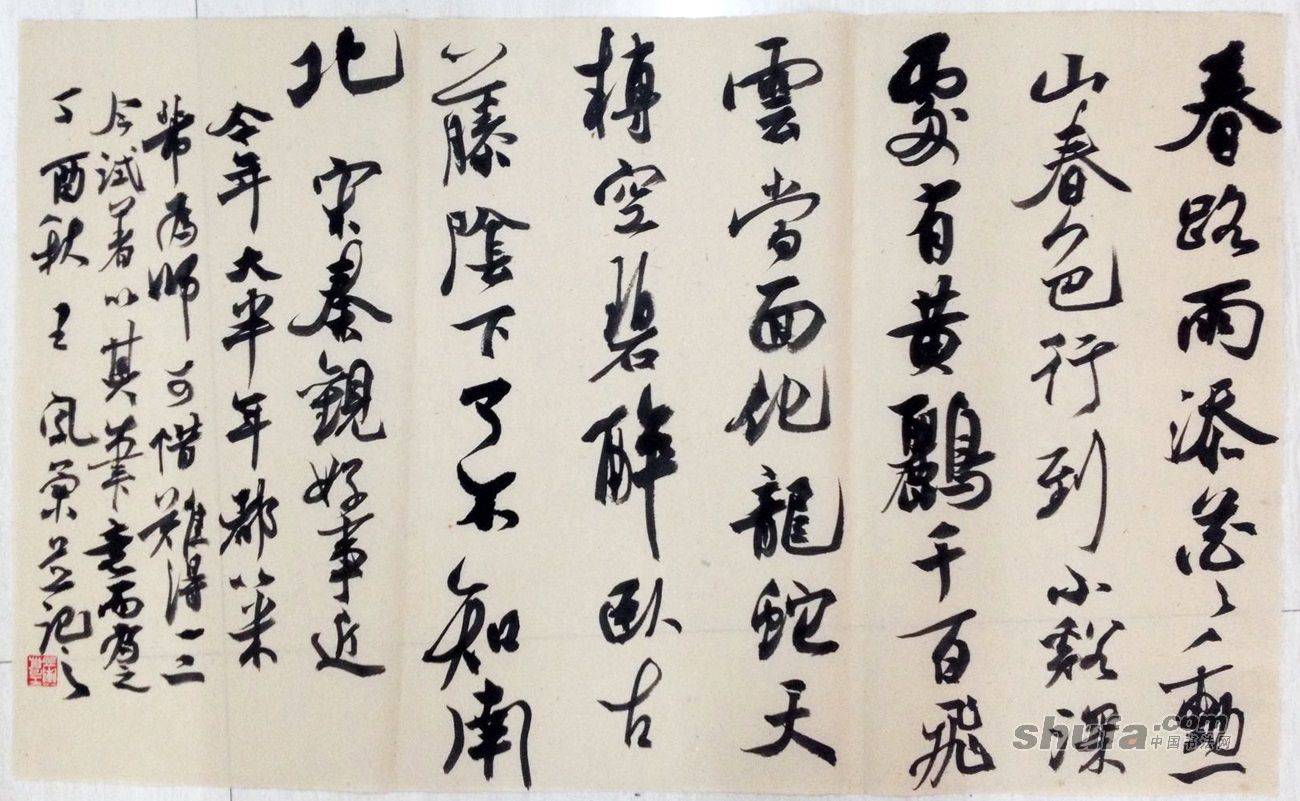 春路雨添花花動一
山春色行到小谿深
處有黃鸝千百飛
雲當面化龍蛇夭
轉空碧醉臥古
藤陰下了不知南
北 宋秦觀好事近
今年大半年都以米
芾為師可惜難得一二
今試著以其筆意而書之
丁酉秋 王風葉並記之
shufa.com
中国书法网